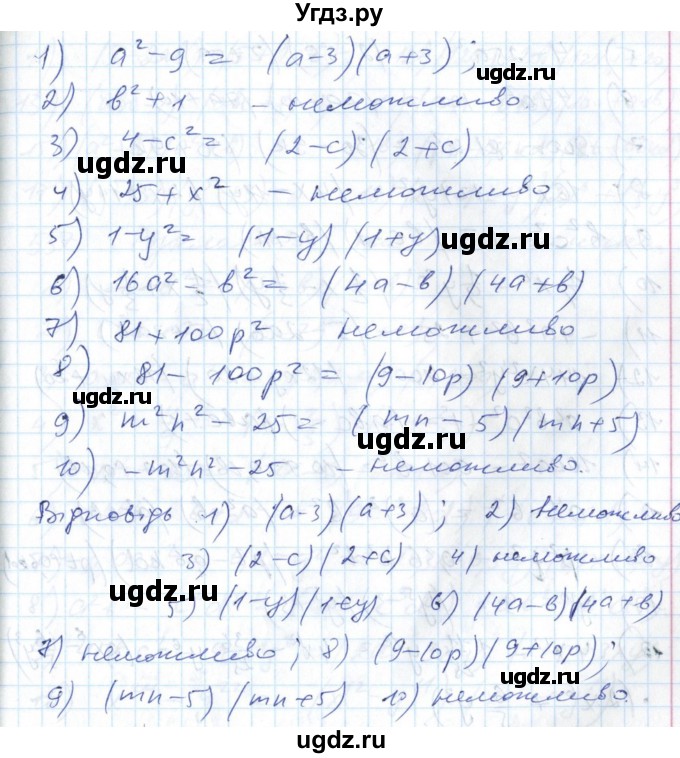 Угдз.ру
1) a² - 9 = (a-3)(a+3);
ugdz.ru
2) b² + 1 - неможливо.
3) 4 - c² = (2-c)·(2+c)
ugdz.ru
4) 25 + x² - неможливо
5) 1-y² = (1-y)(1+y) ugdz.ru
6) 16a² - b² = (4a-b)(4a+b)
7) 81+100p² неможливо
8) 81 - 100p² = (9-10p)(9+10p)
ugdz.ru
9) m²n² - 25 = (mn-5)(mn+5)
ugdz.ru
10) -m²n² - 25 - неможливо.
Відповідь 1) (a-3)(a+3); 2) неможливо
ugdz.ru
3) (2-c)(2+c) 4) неможливо
ugdz.ru
5) (1-y)(1+y) 6) (4a-b)(4a+b)
7) неможливо; 8) (9-10p)(9+10p);
ugdz.ru
9) (mn-5)(mn+5) 10) неможливо.
ugdz.ru